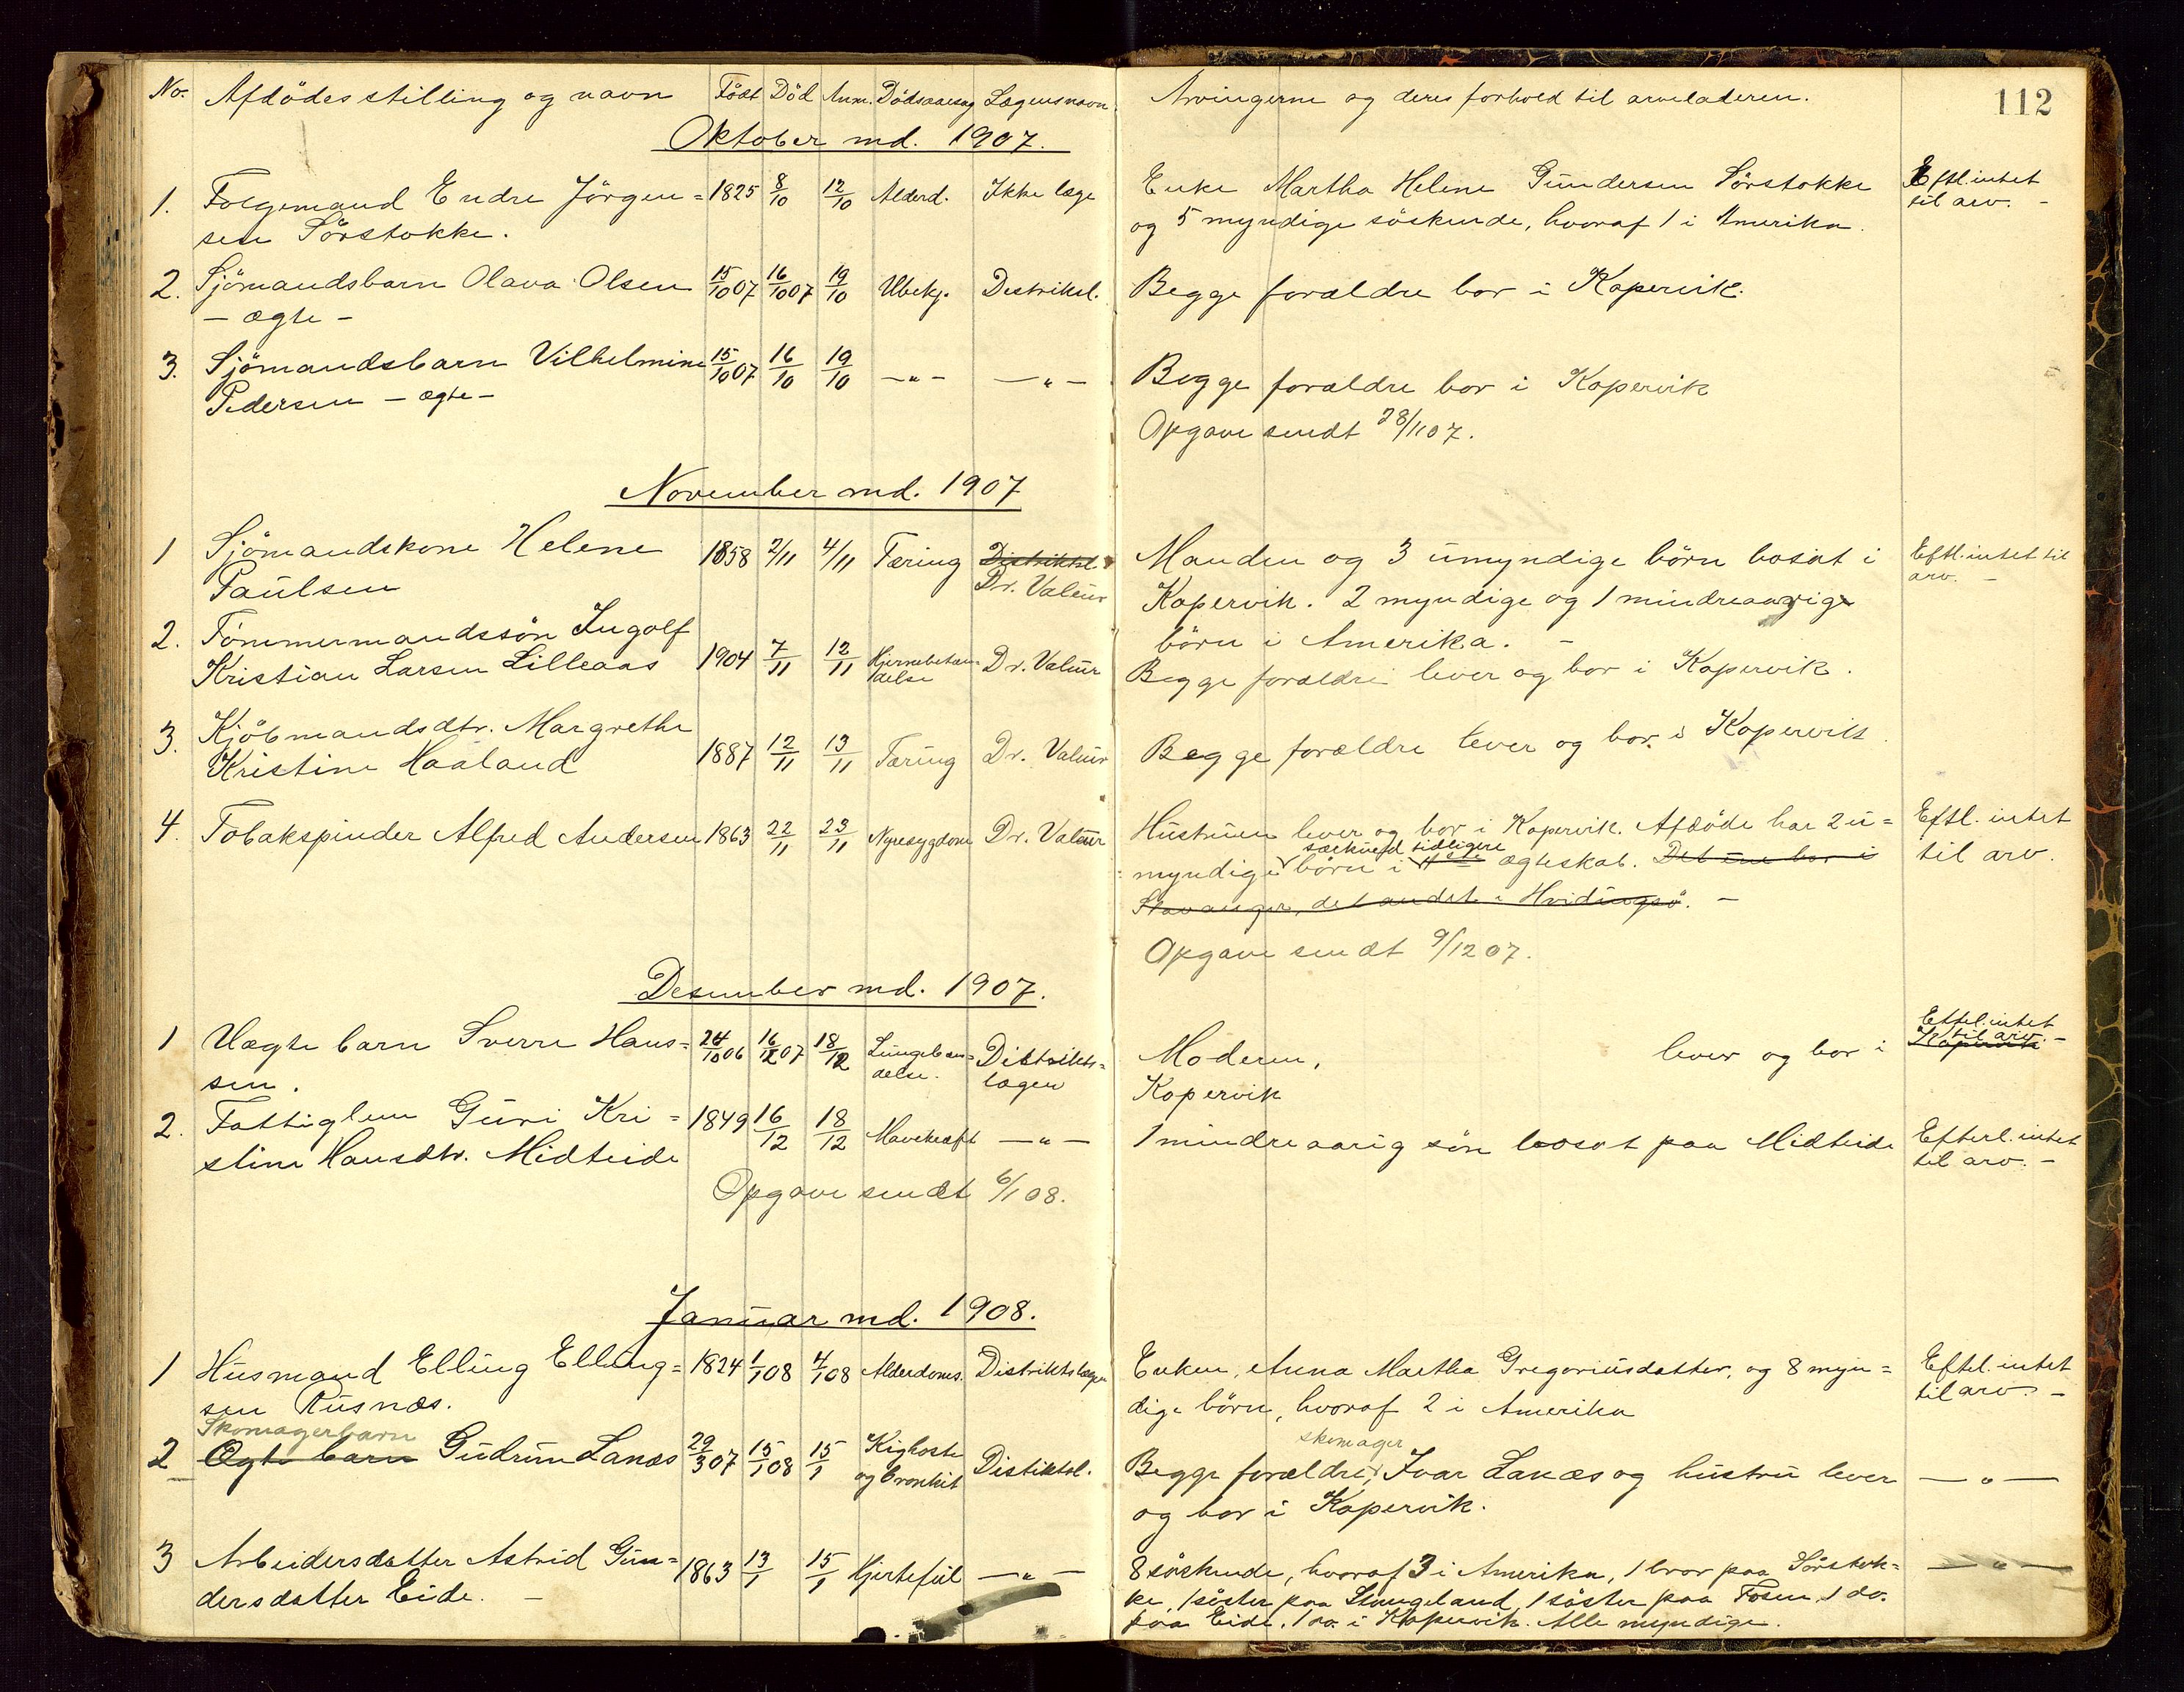 No. Afdödes stilling og navn Födt Död Anm. Dödsaarsag Lægens navn Arvingerne og deres forhold til arveladeren. 112
Oktober md. 1907.
1. Folgemand Endre Jörgen= 1825 8/10 12/10 Alderd. Ikke læge Enke Martha Helene Gundersen Sörstokke Eftl. intet
sen Sörstokke. og 5 myndige söskende, hvoraf 1 i Amerika. til arv. -
2. Sjömandsbarn Olava Olsen 15/10 07 16/10 07 19/10 Ubekj. Distriksl. Begge forældre bor i Kopervik.
- ægte -
3. Sjömandsbarn Vilhelmine 15/10 07 16/10 19/10 -"- -"- Begge forældre bor i Kopervik
Pedersen - ægte - Opgave sendt 28/11 07.
November md. 1907
1 Sjömandskone Helene 1858 2/11 4/11 Tæring Distriktsl. Manden og 3 umyndige börn bosat i Eftl. intet til
Paulsen Dr. Valeur Kopervik. 2 myndige og 1 mindreaarige arv. -
2. Tömmermandssön Ingolf börn i Amerika. -
Kristian Larsen Lilleaas 1904 7/11 12/11 Hjernebetæn= Dr. Valeur Begge forældre lever og bor i Kopervik.
delse
3. Kjöbmandsdtr. Margrethe
Kristine Haaland 1887 12/11 13/11 Tæring Dr. Valeur Begge forældre lever og bor i Kopervik
4. Tobakspinder Alfred Andersen 1863 22/11 23/11 Nyresygdom Dr. Valeur Hustruen lever og bor i Kopervik. Afdöde har 2 u= Eftl. intet
særkuld tidligere
myndige börn i ægteskab. Det ene bor i til arv.
Stavanger, det andet i Hvidingsö. -
Opgave sendt 9/12 07.
Desember md. 1907.
1 Uægte barn Sverre Hans= 24/10 06 16/12 07 18/12 Lungebæn= Distrikts= Moderen, lever og bor i Kopervik Eftel. intet til arv. -
sen. delse. lægen Kopervik
2. Fattiglem Guri Kri= 1849 16/12 18/12 Mavekræft -"- 1 mindreaarig sön bosat paa Midteide Efterl. intet
stine Hansdtr. Midteide til arv. -
Opgave sendt 6/1 08.
Januar md. 1908.
1 Husmand Elling Elling= 1824 1/1 08 4/1 08 Alderdoms. Distriktslægen Enken, Anna Martha Gregoriusdatter, og 8 myn= Eftel. intet
sen Rusnæs. dige börn, hvoraf 2 i Amerika til arv. -
Skomagerbarn skomager
2 Ægte barn Gudrun Lanæs 29/3 07 15/1 08 15/1 Kighoste Distiktsl. Begge forældre, Ivar Lanæs og hustru lever -"-
og bronkit og bor i Kopervik.
3 Arbeidersdatter Astrid Gun= 1863 13/1 15/1 Hjertefeil -"- 8 söskende, hvoraf 3 i Amerika, 1 bror paa Sörstok= -"-
dersdatter Eide. - ke, 1 söster paa Stangeland, 1 söster paa Fosen, 1 do.
paa Eide, 1 do. i Kopervik. Alle myndige.